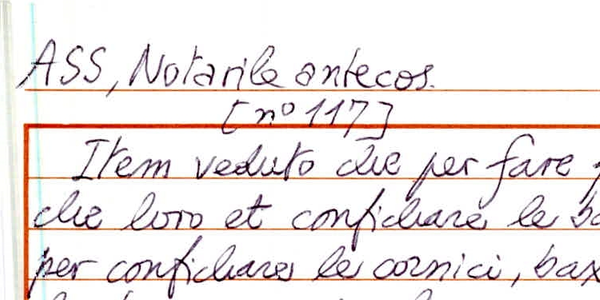 ASS, Notarile antecos.
[nº 117]
Item veduto che per fare
che loro et conficharei le
per conficharei le cornici,